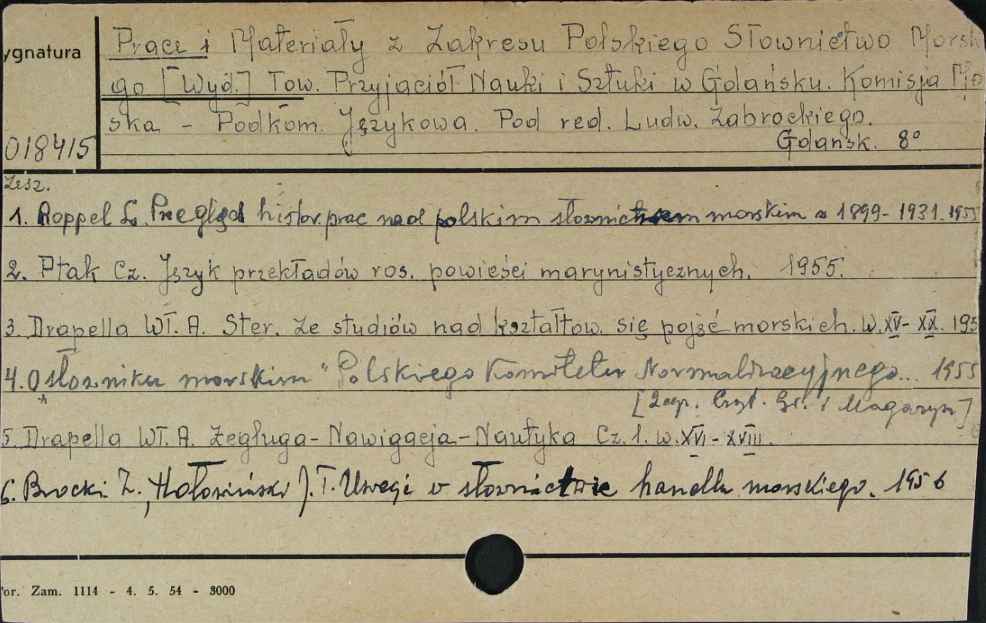 ygnatura
018415
Prace i Materiały z Zakresu Polskiego Słownictwo Morsk
go [Wyd.] Tow. Przyjaciół Nauki i Sztuki w Gdańsku. Komisja Mo
ska - Podkom. Językowa. Pod red. Ludw. Zabrockiego.
Gdańsk. 8°
Zesz.
1. Roppel L. Przegląd histor. prac nad polskim słownictwem morskim z 1899-1931. 1955
2. Ptak Cz. Język przekładów ros. powieści marynistycznych. 1955.
3. Drapella Wł. A. Ster. Ze studiów nad kształtow. się pojęć morskich. W. XV-XX. 195
4. O słowniku morskim "Polskiego Komitetu Normalizacyjnego... 1955
[2 egz. Czyt. Gł. i Magazyn]
5. Drapella Wł. A. Żegluga-Nawigacja-Nautyka Cz. 1. w. XVI-XVIII.
6. Brocki Z., Hołowiński J. T. Uwagi o słownictwie handlu morskiego. 1956
or. Zam. 1114 - 4. 5. 54 - 3000